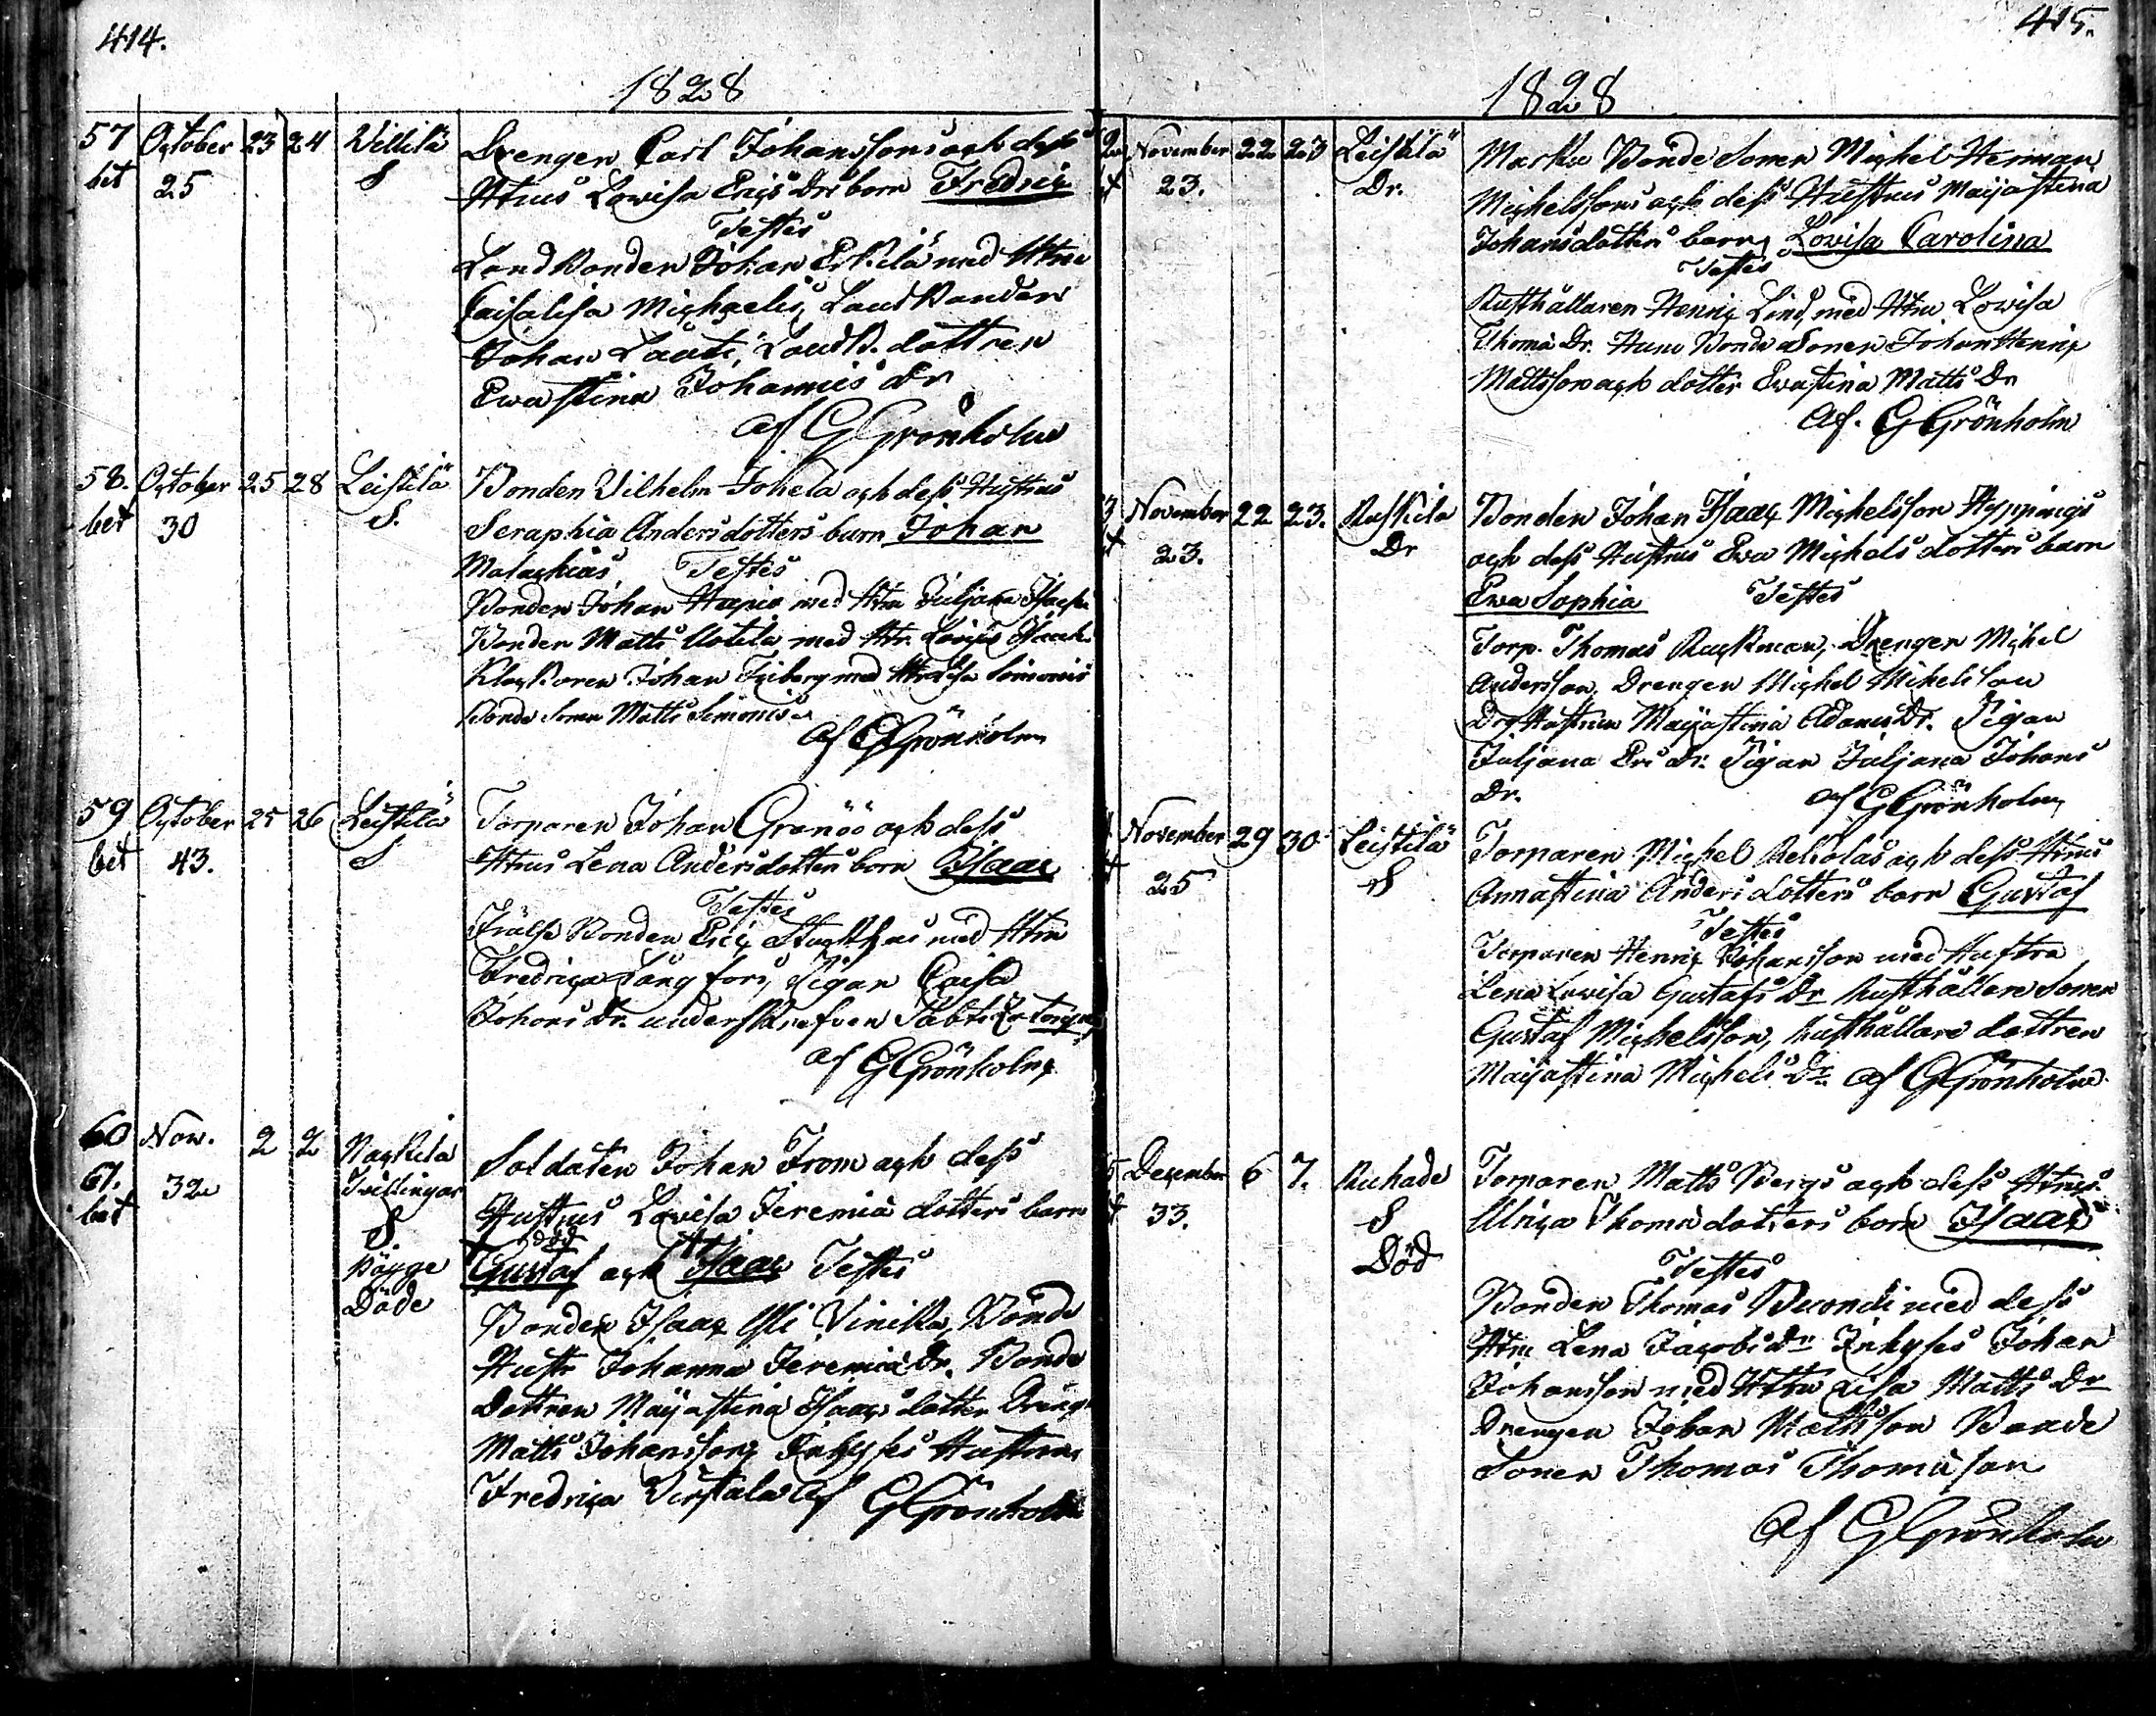 414.
1828
57 October 23 24 Villilä Drengen Carl Johanssons och dess
bet 25 S Htrus Lovisa Erics Drs barn Fredric
Testes
Landbonden Johan Erkilä med Htru
Caisalisa Michaelis, Landbonden
Johan Lauti, Landb. dottren
Ewastina Johannis Dr
af GGrönholm
58. October 25 28 Leistilä Bonden Vilhelm Johela och dess Hustrus
bet 30 S. Seraphia Andersdotters barn Johan
Malachias Testes
Bonden Johan med Htru Juljana Isacks
Bonden Matts Uotila med Htr. Lovisa Isaaks
Klockaren Johan Friberg med Htr Lisa Simonis
Bonde Sonen Matts Simonis
af GGrönholm
59 October 25 26 Leistilä Torparen Johan Granöö och dess
bet 43. S Htrus Lena Andersdotters barn Isaac
Testes
Frälse Bonden Eric med Htru
Fredrica Långfors, Pigan Caisa
Johans Dr. underskrefven
af GGrönholm
60 Nov. 2 2 Nackila Soldaten Johan From och dess
61. 32 Tvillingar Hustrus Lovisa Jeremiä dotters barn
bet S. död
bägge Gustaf och Isaac Testes
Döde Bonden Isaac Yli Vinikka, Bonde
Hustr Johanna Jeremiä Dr. Bonde
Dottren Majastina Isaacs dotter Dreng
Matts Johansson, Inhyses Hustrun
Fredrica Virstala af GGrönholm
415.
1828
2 November 22 23 Leistilä Marku Bonde Sonen Michel Herman
23. Dr. Michelssons och dess Hustrus Majastina
Johansdotters barn Lovisa Carolina
Testes
Rusthållaren Henric Lind, med Htru Lowisa
Thomä Dr. Bonde Sonen Johan Henric
Mattsson och dotter Evastina Matts Dr
Af. GGrönholm
3 November 22 23. Ruskila Bonden Johan Isaac Michelsson Hyppings
23. Dr och dess Hustrus Ewa Michels dotters barn
Ewa Sophia Testes
Torp. Thomas Ruckman, Drengen Michel
Andersson, Drengen Michel Michelsson
Drg Hustrun Majastina Adams Dr. Pigan
Juljana Ers Dr. Pigan Juljana Johans
Dr. af GGrönholm
November 29 30 Leistilä Torparen Michel Rekolas och dess Htrus
25 S Annastina Anders dotters barn Gustaf
Testes
Torparen Henric Johansson med Hustru
Lena Lovisa Gustafs Dr Rusthållare Sonen
Gustaf Michelsson, Rusthållare dottren
Majastina Michels Dr. af GGrönholm
5 December 6 7. Ruhade Torparen Matts Bergs och dess Htrus
33. S Ulrica Thomä dotters barn Isaac
Död
Testes
Bonden Thomas med dess
Htru Lena Jacobs Dr Inhyses Johan
Johansson med Htru Lisa Matts Dr
Drengen Johan Mattsson Bonde
Sonen Thomas Thomasson
Af GGrönholm